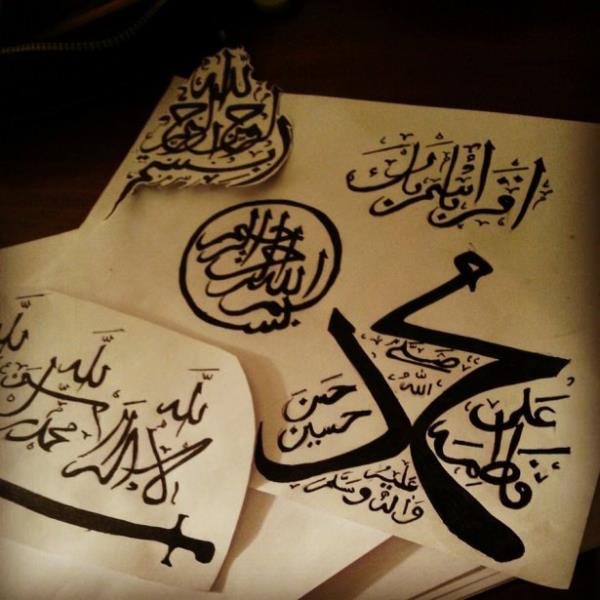 بسم الله الرحمن الرحيم
اقرأ باسم ربك
بسم الله الرحمن الرحيم
محمد
صلى
الله
عليه
وآله وسلم
علي
فاطمة
حسن
حسين
لا إله إلا الله محمد رسول الله